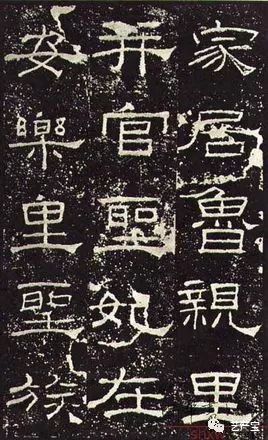 家居魯親里
并官聖妃在
安樂里聖族
艺产宝